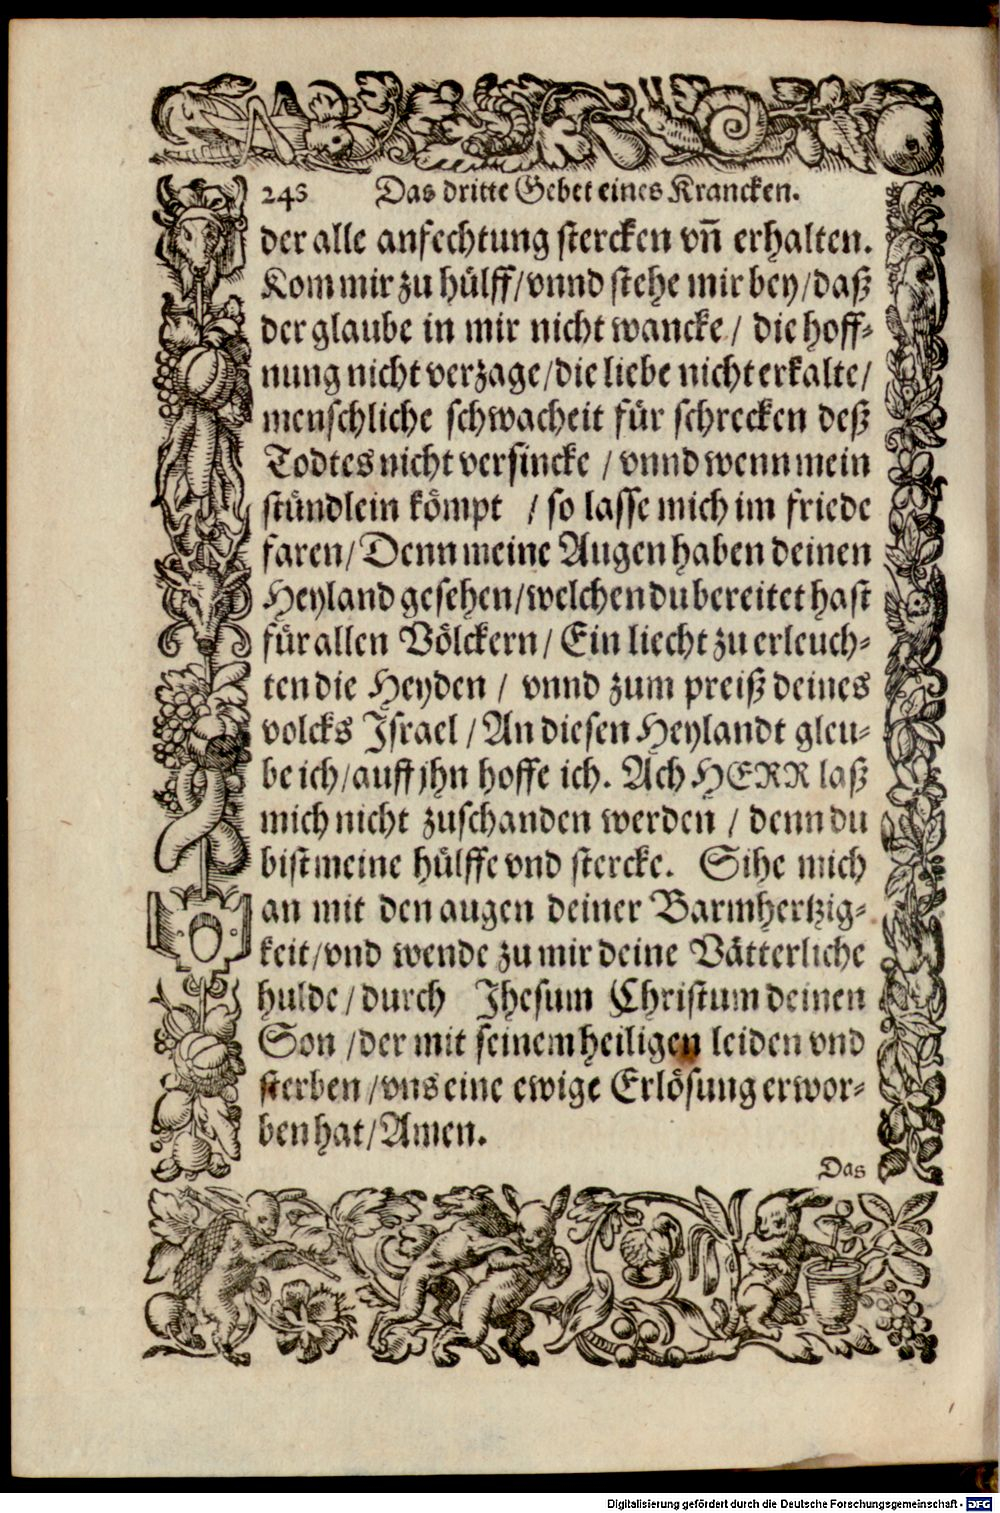 248 Das dritte Gebet eines Krancken.
der alle anfechtung stercken vñ erhalten.
Kom mir zu hülff/vnnd stehe mir bey/daß
der glaube in mir nicht wancke/ die hoff-
nung nicht verzage/die liebe nicht erkalte/
menschliche schwacheit für schrecken deß
Todtes nicht versincke / vnnd wenn mein
stündlein kömpt / so lasse mich im friede
faren/Denn meine Augen haben deinen
Heyland gesehen/welchen du bereitet hast
für allen Völckern/ Ein liecht zu erleuch-
ten die Heyden / vnnd zum preiß deines
volcks Israel / An diesen Heylandt gleu-
be ich/auff jhn hoffe ich. Ach HERR laß
mich nicht zuschanden werden / denn du
bist meine hülffe vnd stercke. Sihe mich
an mit den augen deiner Barmhertzig-
keit/vnd wende zu mir deine Vätterliche
hulde/durch Jhesum Christum deinen
Son /der mit seinem heiligen leiden vnd
sterben/vns eine ewige Erlösung erwor-
ben hat/Amen.
Das
Digitalisierung gefördert durch die Deutsche Forschungsgemeinschaft - DFG